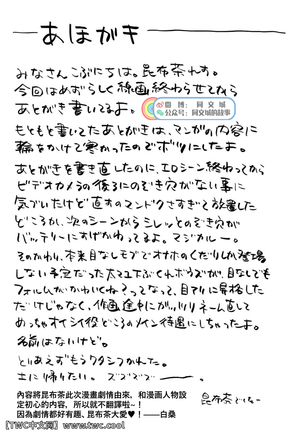 あほがき
みなさんこぶにちは。昆布茶れす。
今回はめずらしく線画終わらせてから
あとがき書いてるよ。
微博： 同文城
公众号：同文城的故事
もともと書いてたあとがきは、マンガの内容に
輪をかけて寒かったのでボツにしたよ。
あとがきを書き直したのに、エロシーン終わってから
ビデオカメラの後ろにのぞき穴がない事に
気づいたけど直すのマンドクさすぎて放置した
どころか、次のシーンからシレッとのぞき穴が
バッテリーにすげかわってるよ。マジカルー。
そのかわり、本来目なしモブでオナホのくだりしか登場
しない予定だった
フォルムがかわいくね？ってなって、目アリに昇格した
だけじゃなく、作画途中にガッツリネーム直して
めっちゃオイシイ役どころのメイン待遇にしちゃったよ。
名前はないけど。
とりあえずもうクタシつかれた。
土に帰りたい。
昆布茶
內容將昆布茶此次漫畫劇情由來、和漫画人物設
定初心的内容，所以就不翻譯啦~！
因為劇情都好有趣、昆布茶大愛♥！——白桑
【TWC中文网】 www.twc.cool